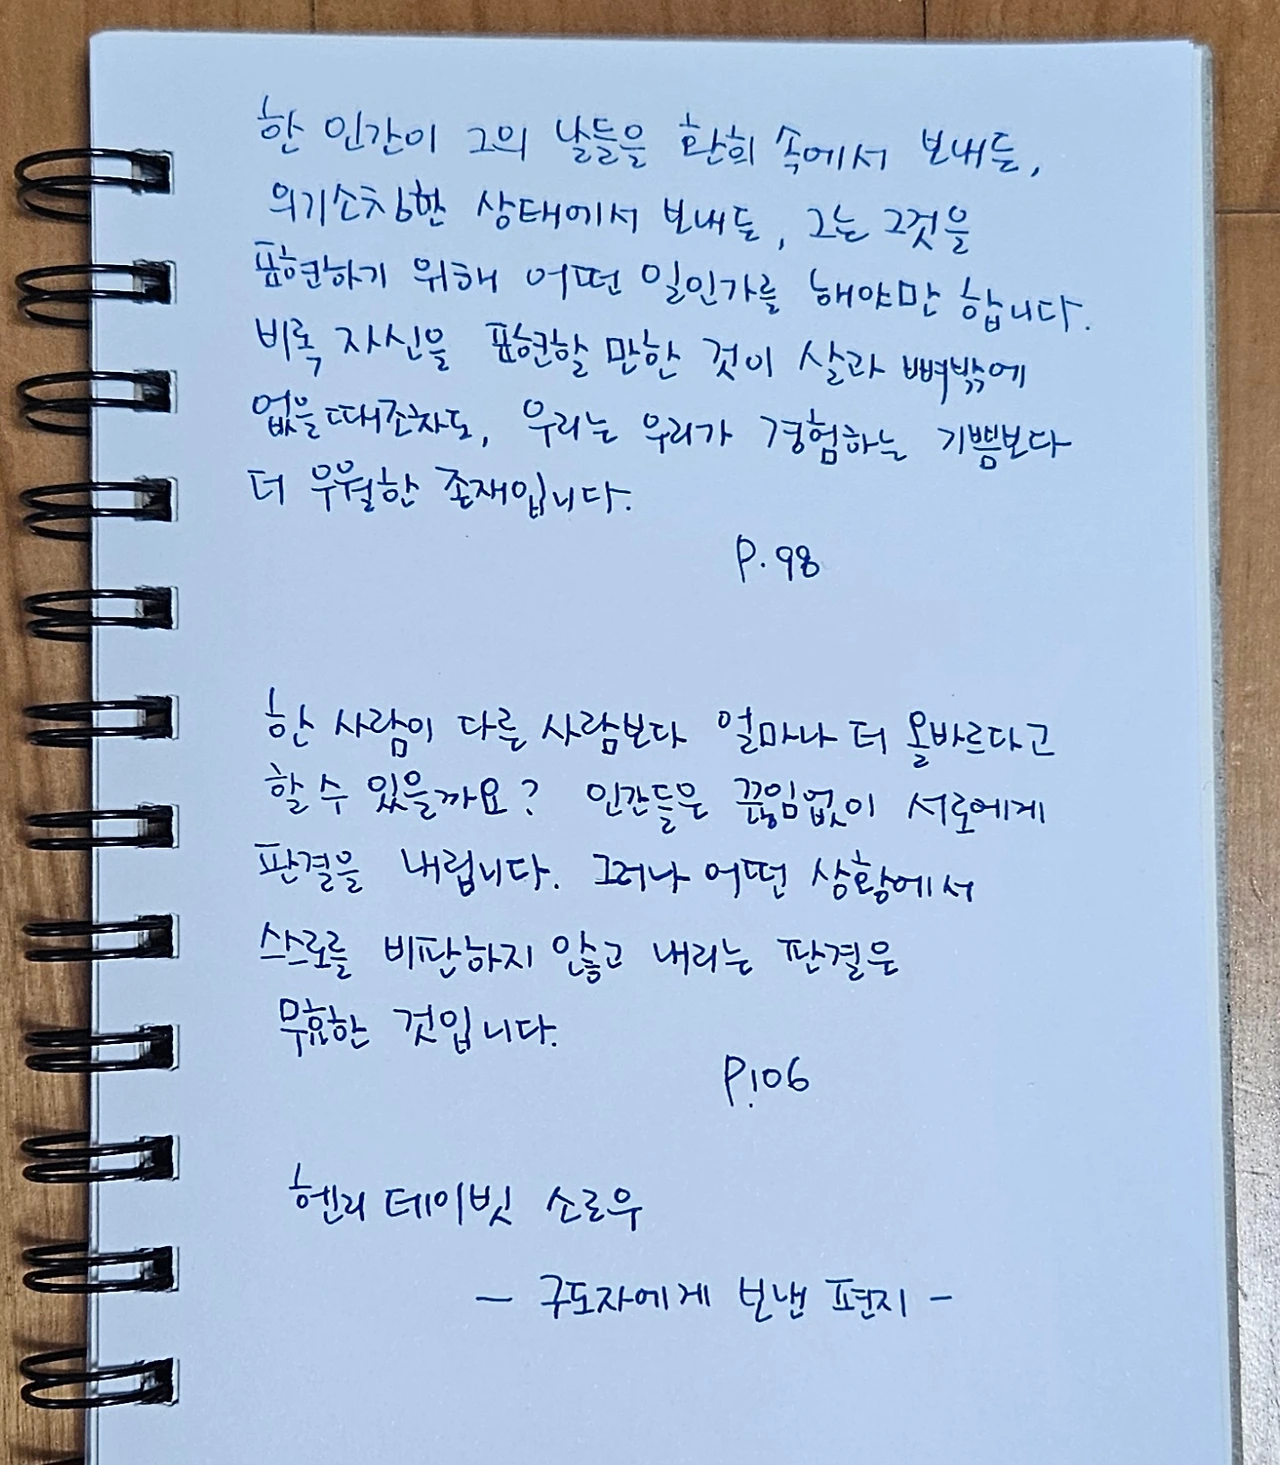 한 인간이 그의 날들을 환희 속에서 보내든,
의기소침한 상태에서 보내든, 그는 그것을
표현하기 위해 어떤 일인가를 해야만 합니다.
비록 자신을 표현할 만한 것이 살과 뼈밖에
없을때조차도, 우리는 우리가 경험하는 기쁨보다
더 우월한 존재입니다.
P.98
한 사람이 다른 사람보다 얼마나 더 올바르다고
할 수 있을까요? 인간들은 끊임없이 서로에게
판결을 내립니다. 그러나 어떤 상황에서
스스로를 비판하지 않고 내리는 판결은
무효한 것입니다.
P.106
헨리 데이빗 소로우
- 구도자에게 보낸 편지 -